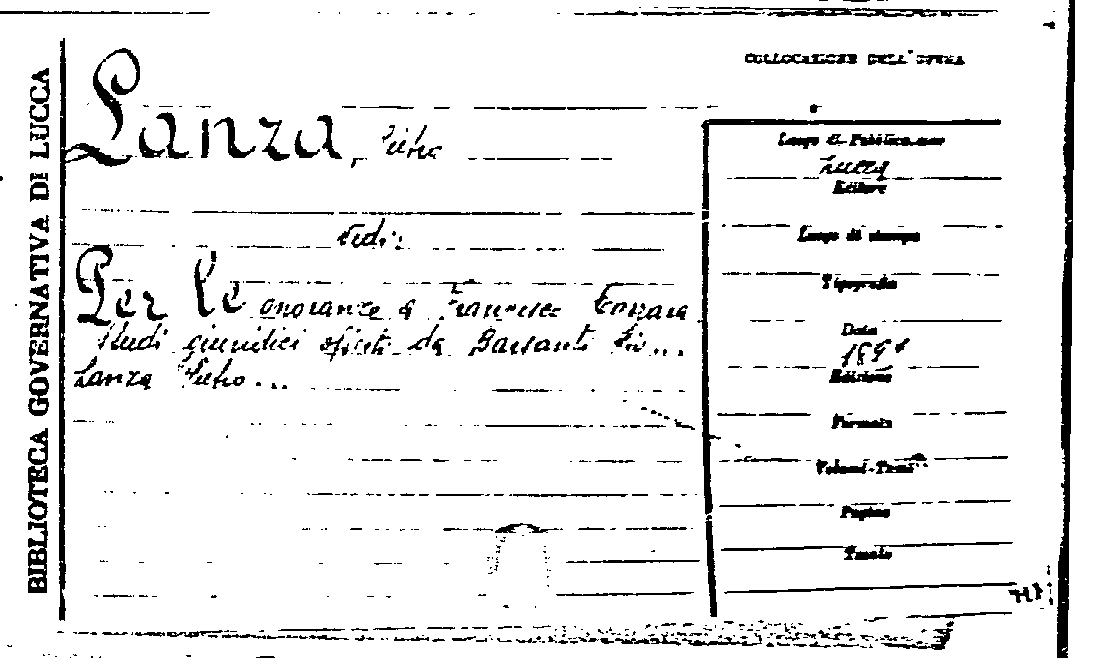 BIBLIOTECA GOVERNATIVA DI LUCCA
COLLOCAZIONE DELL'OPERA
Lanza, Pietro
Vedi:
Per le onoranze a Francesco Carrara
Studi giuridici offerti da Barsanti Pio...
Lanza Pietro...
Luogo di Pubblicazione
Lucca
Editore
Luogo di stampa
Tipografia
Data
Edizione
Formato
Volumi-Tomi
Pagine
Tavole